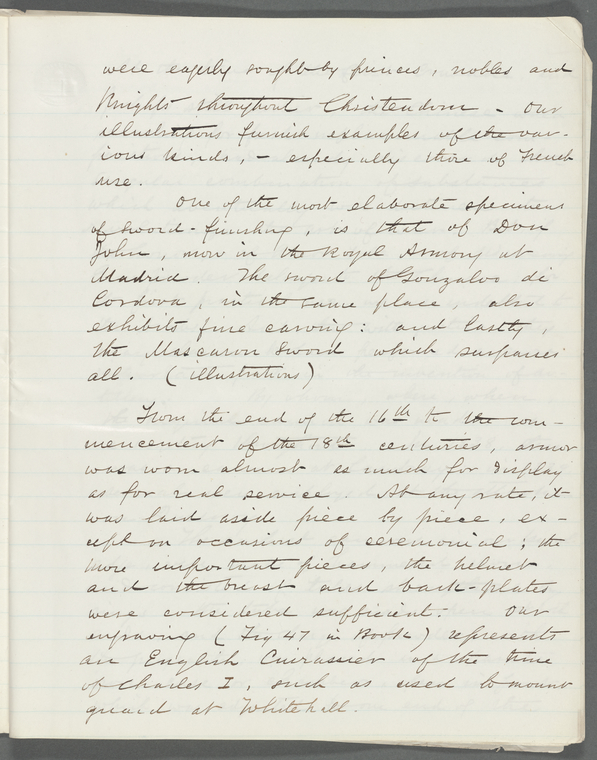 were eagerly sought by princes, nobles and
Knights throughout Christendom - Our
illustrations furnish examples of the var-
ious kinds, - especially those of French
use.
One of the most elaborate specimens
of sword-finishing, is that of Don
John, now in the Royal Armory at
Madrid. The sword of Gonzalvo di
Cordova, in the same place, also
exhibits fine carving: and lastly,
the Mascaron Sword which surpasses
all. (illustrations)
From the end of the 16th to the com-
mencement of the 18th centuries, armor
was worn almost as much for display
as for real service. At any rate, it
was laid aside piece by piece, ex-
cept on occasions of ceremonial; the
more important pieces, the helmet
and the breast and back-plates
were considered sufficient. Our
engraving (Fig 47 in Book) represents
an English Cuirassier of the time
of Charles I, such as used to mount
guard at Whitehall.